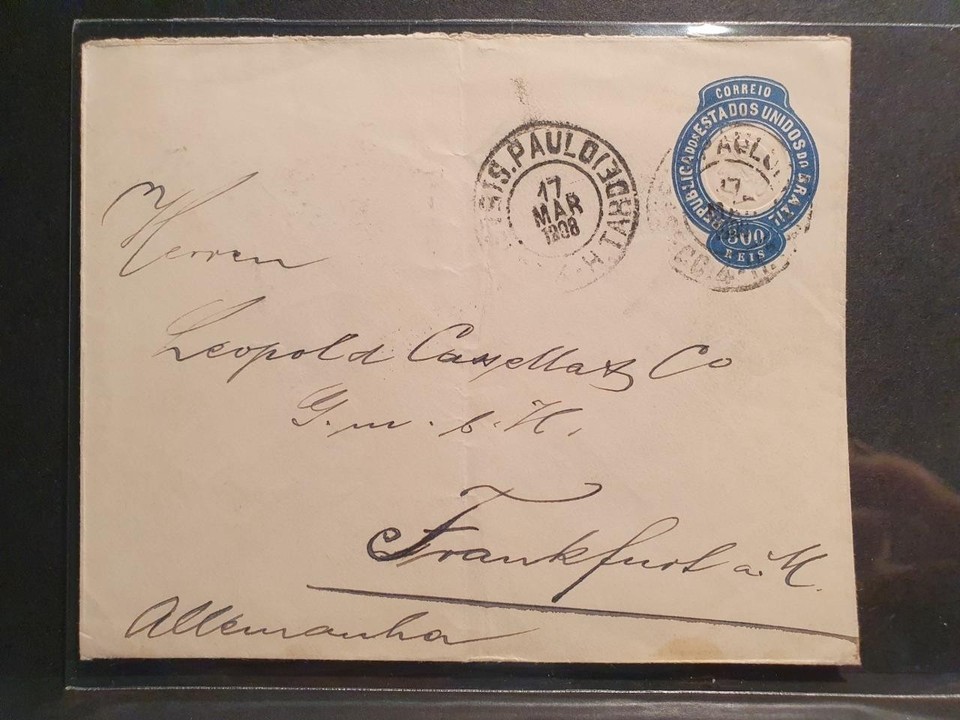 CORREIO
REPUBLICA DOS ESTADOS UNIDOS DO BRAZIL
300
REIS
S. PAULO (TARDE)
17
MAR
1898
PAULO
17
Herren
Leopold Cassella & Co
G. m. b. H.
Frankfurt a. M.
Allemanha